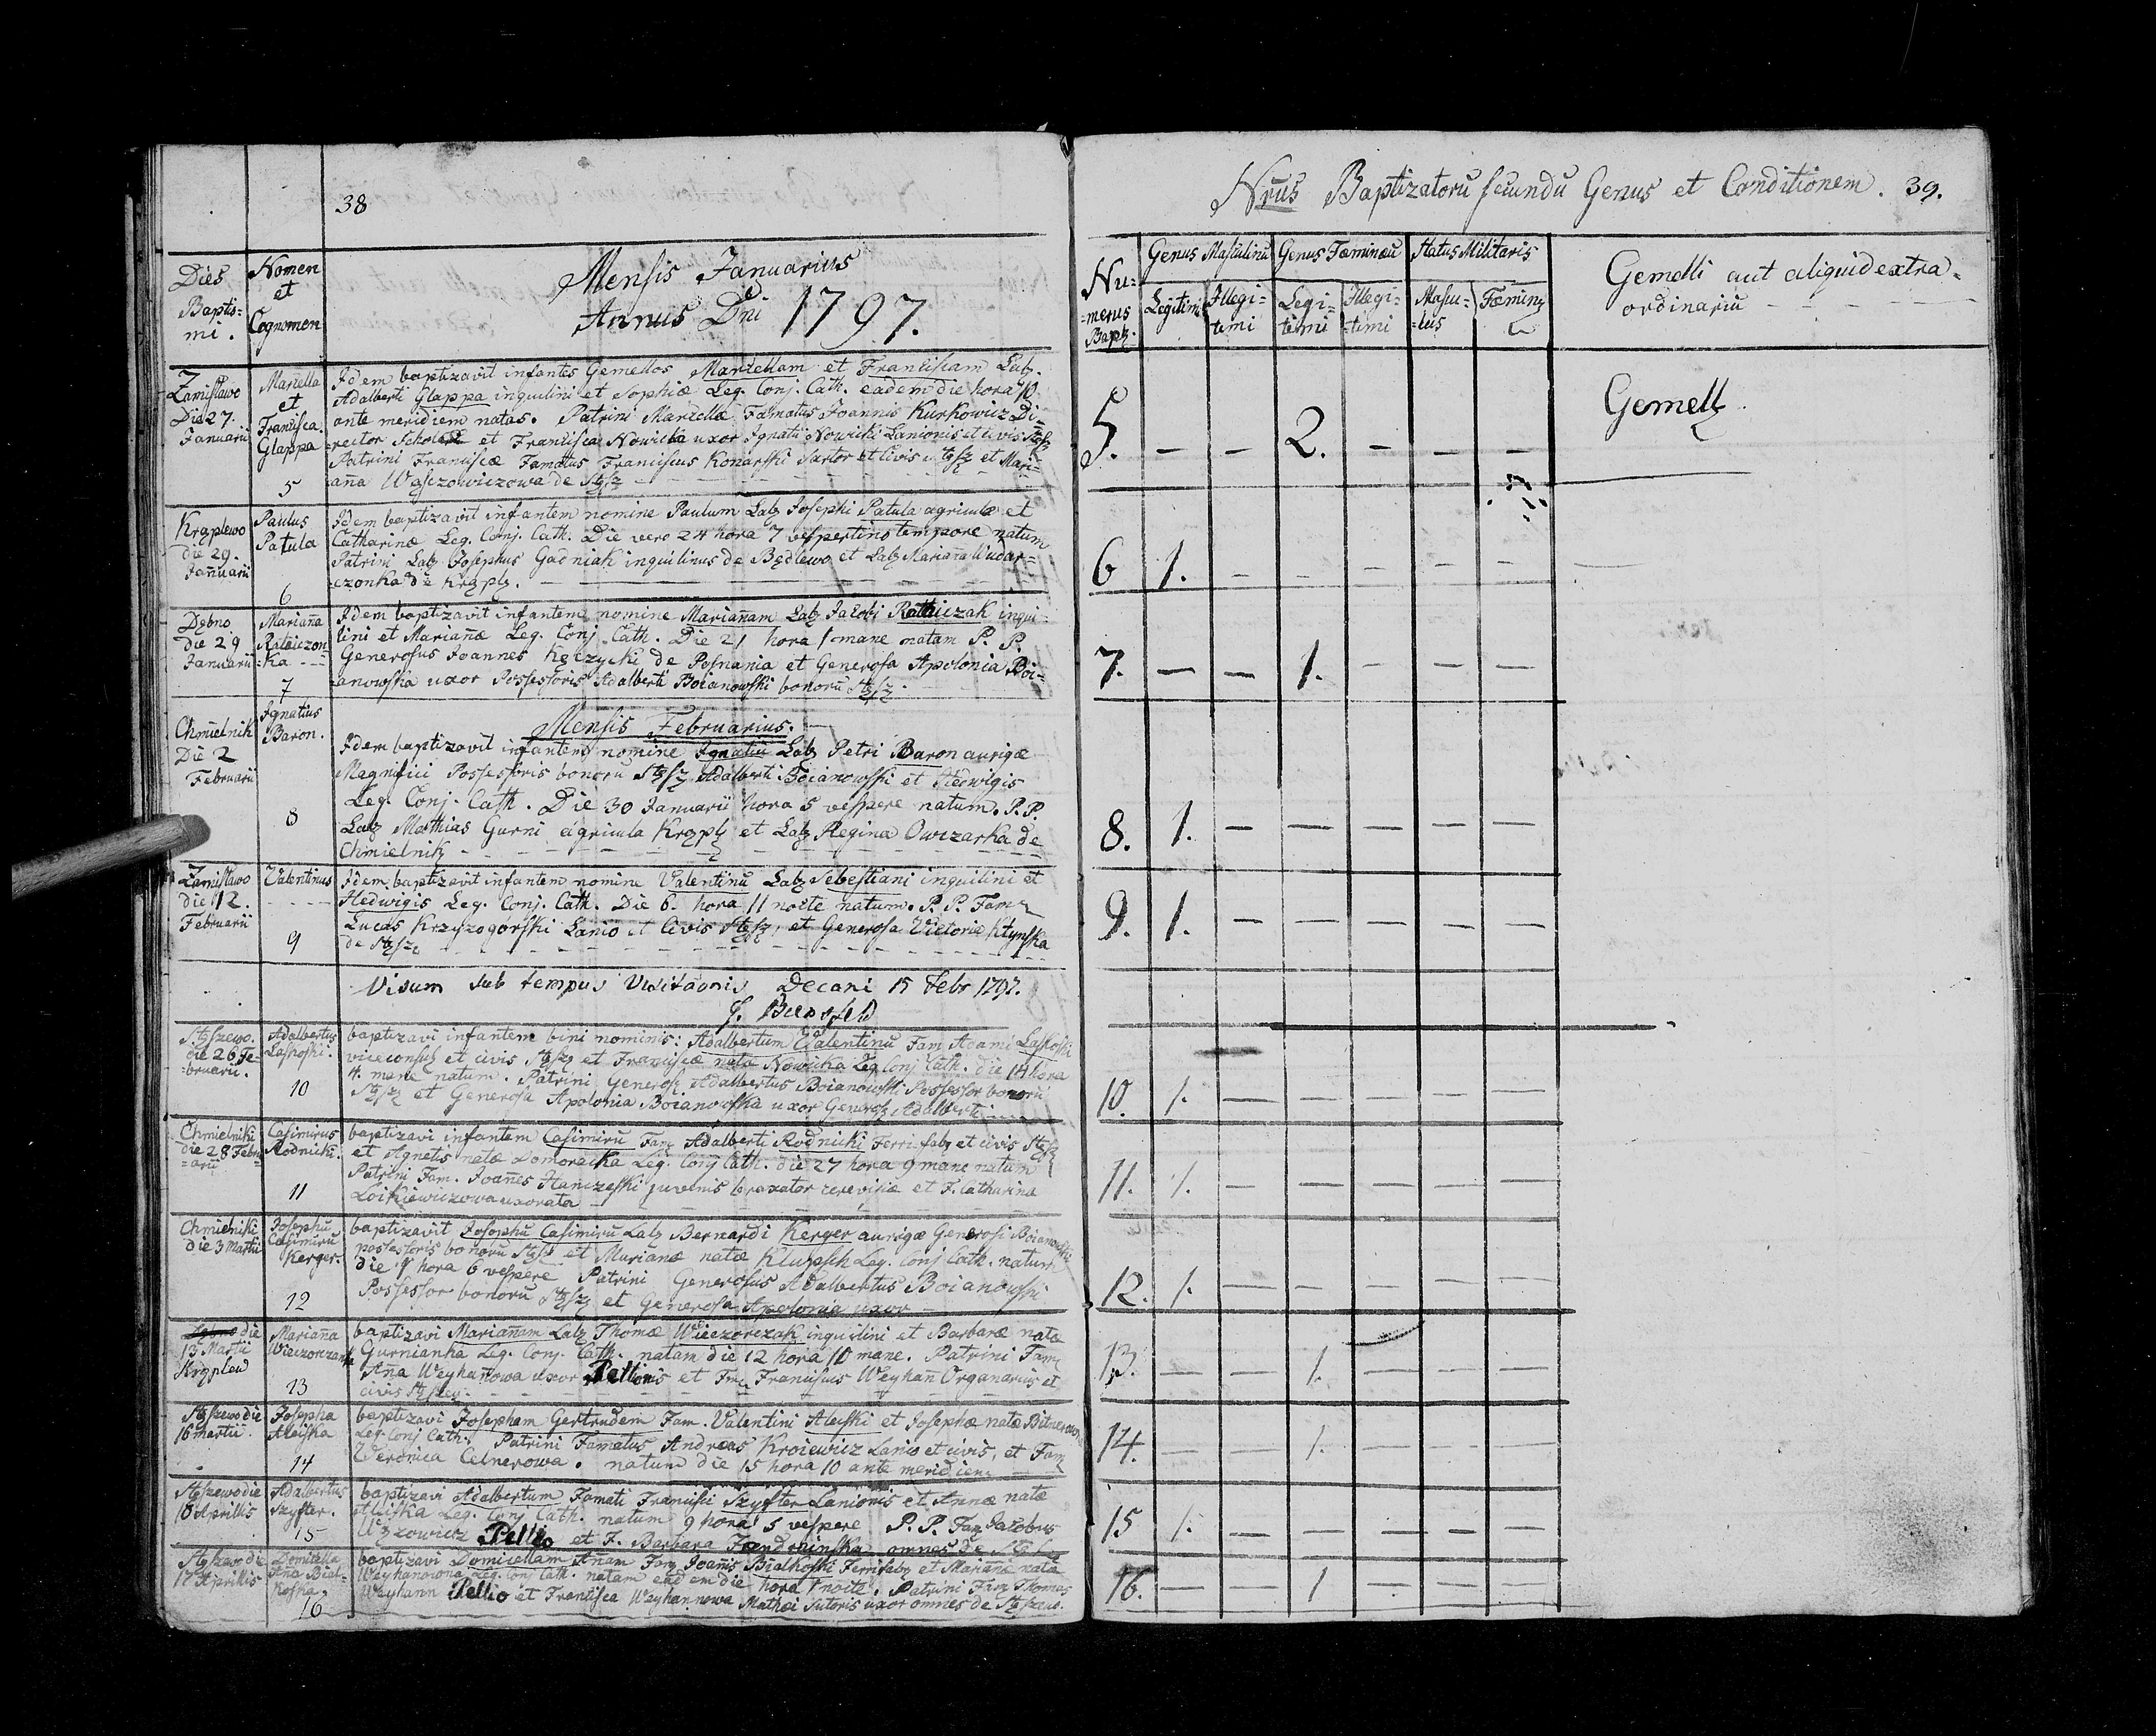 38
Dies
Baptis=
mi.
Nomen
et
Cognomen
Mensis Januarius
Annus Dni 1797.
Zamisławo
Die 27.
Januarii
Marcella
et
Francisca
Glappa
5
Idem baptizavit infantes Gemellos Marcellam et Franciscam Lab.
Adalberti Glappa inquilini et Sophiæ Leg. Conj. Cath. eadem die hora 10
ante meridiem natas. Patrini Marcellæ Famatus Joannis Kurkowicz Di=
rector Scholæ et Francisca Nowicka uxor Ignatii Nowicki Lanionis et civis Stęsz
Patrini Franciscæ Famatus Franciscus Konarski Sartor et Civis Stęsz et Mari=
aña de Stęsz
Krąplewo
die 29.
Januarii
Paulus
Patula
6
Idem baptizavit infantem nomine Paulum Lab Josephi Patula agricolæ et
Catharinæ Leg. Conj. Cath. Die vero 24 hora 7 vespertino tempore natum
Patrini Lab Josephus Gadniak inquilinus de Będlewo et Lab Mariaña
czonka de Krąpl.
Dębno
die 29
Januarii
Mariaña
Rataiczon
=ka
7
Idem baptizavit infantem nomine Mariañam Lab Jacobi Rataiczak inqui=
lini et Mariañæ Leg. Conj. Cath. Die 21 hora 1 mane natam P. P.
Generosus Joannes Kęczycki de Posnania et Generosa Apolonia Boi=
anowska uxor Possessoris Adalberti Boianowski bonorũ Stęsz.
Chmielnik
Die 2
Februarii
Ignatius
Baron.
8
Mensis Februarius.
Idem baptizavit infantem nomine Ignatiũ Lab Petri Baron aurigæ
Magnifici Possessoris bonorũ Stęsz Adalberti Boianowski et Hedwigis
Leg. Conj. Cath. Die 30 Januarii hora 5 vespere natum. P.P.
Lab Mathias Gurni agricola Krąpl et Lab Regina Owczarka de
Chmielnik
Zamisławo
die 12.
Februarii
Valentinus
9
Idem baptizavit infantem nomine Valentinũ Lab Sebestiani inquilini et
Hedwigis Leg. Conj. Cath. Die 6. hora 11 nocte natum. P. P. Fam
Lucas Krzyzogorski Lanio et Civis Stęsz, et Generosa Victoria Ktynska
de Stęsz
Visum sub tempus Visitãonis Decani 15 Febr 1797.
Stęszewo.
die 26 Fe=
=bruarii.
Adalbertus
Laskoski.
10
baptizavi infantem bini nominis: Adalbertum Valentinũ Fam Adami Laskoski
viceconsul et civis Stęsz et Franciscæ nata Nowicka Leg Conj Cath. die 14 hora
4. mane natum. Patrini Generos Adalbertus Boianowski Possessor bonorũ
Stęsz et Generosa Apolonia Boianowska uxor Generosi Adalberti
Chmielniki
die 28 Febru
=arii
Casimirus
Rodnicki.
11
baptizavi infantem Casimirũ Fam Adalberti Rodnicki Ferri fab et civis Stęsz
et Agnetis natæ Domoracka Leg. Conj Cath. die 27 hora 9 mane natum
Patrini Fam. Joañes Hanczeski juvenis braxator cerevisiæ et F. Catharina
Loikiewiczowa uxorata
Chmielniki
die 3 Martii
Josephũ
Casimirũ
Kerger.
12
baptizavit Josephũ Casimirũ Lab Bernardi Kerger aurigæ Generosi Boianowski
possessoris bonorũ Stęsz et Marianæ natæ Klupsch Leg. Conj Cath. natum
die 1 hora 6 vespere Patrini Generosus Adalbertus Boianowski
Possessor bonorũ Stęsz et Generosa Apolonia uxor
Dębno die
13 Martii
Krąplew
Mariaña
Wieczorczanka
13
baptizavi Mariañam Lab Thomæ Wieczorczak inquilini et Barbaræ nata
Gurnianka Leg. Conj. Cath. natam die 12 hora 10 mane. Patrini Fam
Aña Weyhañowa uxor Pellionis et Fm Franciscus Weyhañ Organarius et
civis Stęszev.
Stęszewo die
16 martii.
Josepha
Aleiska
14
baptizavi Josepham Gertrudem Fam. Valentini Aleiski et Josephæ nata
Leg. Conj Cath. Patrini Famatus Andreas Kroiewicz Lanio et civis, et Fam
Veronica Celnerowa. natum die 15 hora 10 ante meridiem
Stęszewo die
10 Aprillis
Adalbertus
Szyfter.
15
baptizavi Adalbertum Famati Francisci Szyfter Lanionis et Annæ nata
Leg. Conj Cath. natum 9 hora 5 vespere P. P. Fam Jacobus
Pellio et F. Barbara omnes de Stęsze
Stęszewo die
17 Aprillis
Domicella
Aña Bial=
koska,
16
baptizavi Domicellam Añam Fam Joañis Bialkoski Ferrifabr et Mariañæ nata
Weyhanowna Leg. Conj Cath. natam eadem die hora 1 nocte. Patrini Fam Thomas
Weyhann Pellio et Francisca Weyhannowa Mathæi Sutoris uxor omnes de Stęszewo.
Nrus Baptizatorũ secundũ Genus et Conditionem. 39.
Nu=
=merus
Bapt.
Genus Masculinũ
Genus Fæmineũ
Status Militaris
Legitimi
Illegi=
timi
Legi=
timi
Illegi=
=timi
Mascu=
=lus
Fæminę
Gemelli aut aliquid extra=
ordinariũ
5. — — 2. — — —
Gemelli
6 1. — — — — —
7. — — 1. — — —
8. 1. — — — — —
9. 1. — — — — —
10. 1. — — — — —
11. 1. — — — — —
12. 1. — — — — —
13. — — 1. — — —
14. — — 1. — — —
15 1. — — — — —
16. — — 1 — — —